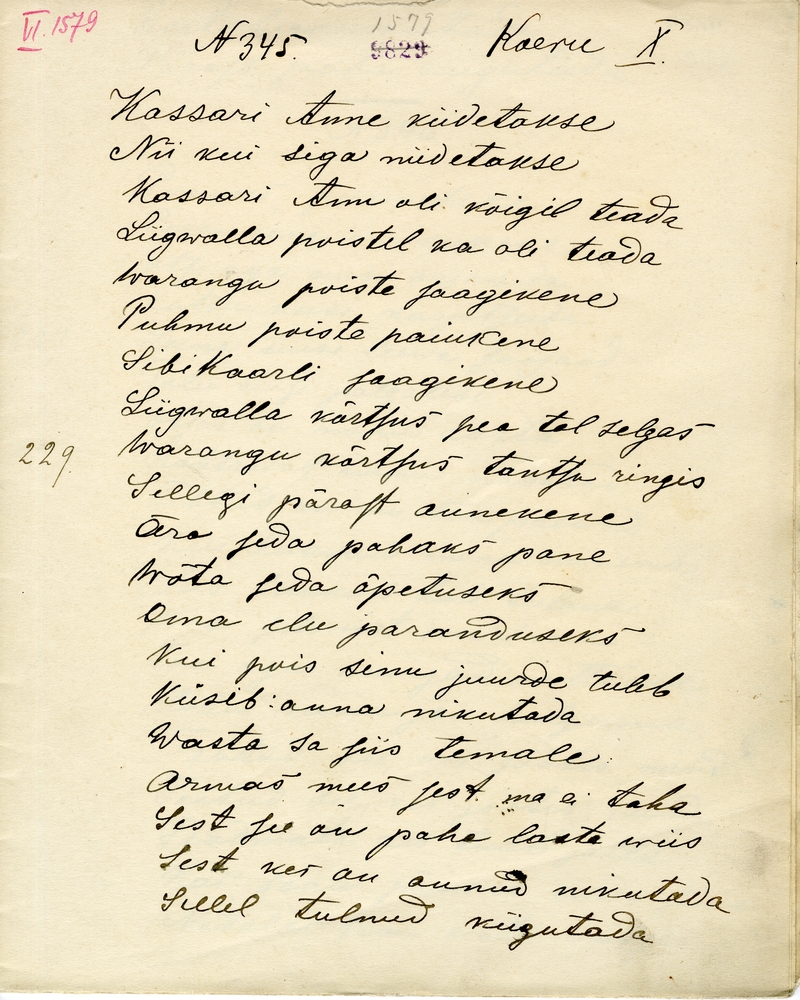 VI. 1579
N 345.
1579
9829
Koeru X.
Kassari Anne kiidetakse
Nii kui siga niidetakse
Kassari Ann oli kõigil teada
Liigwalla poistel ka oli teada
Warangu poiste saagikene
Puhmu poiste paiukene
Sibi Kaarli saagikene
Liigwalla kõrtsus pea tal selgas
229.
Warangu kõrtsus tantsu ringis
Sellegi pärast annekene
Ära seda pahaks pane
Wõta seda õpetuseks
Oma elu paranduseks
Kui pois sinu juurde tuleb
Küsib: anna nikutada
Wasta sa siis temale:
Armas mees sest ma ei taha
Sest see on paha laste wiis
Sest kes on annud nikutada
Sellel tulnud kiigutada